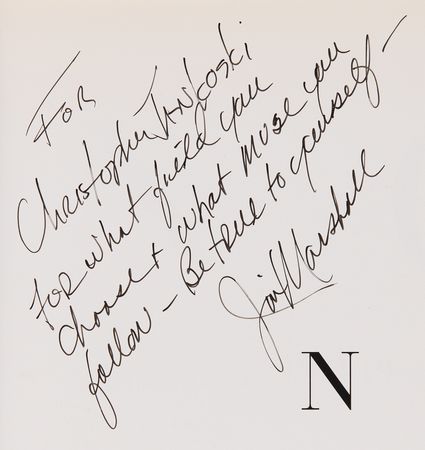 For
Christopher Jankoski
For what field you
choose + what muse you
follow – Be true to yourself –
Jim Marshall
N